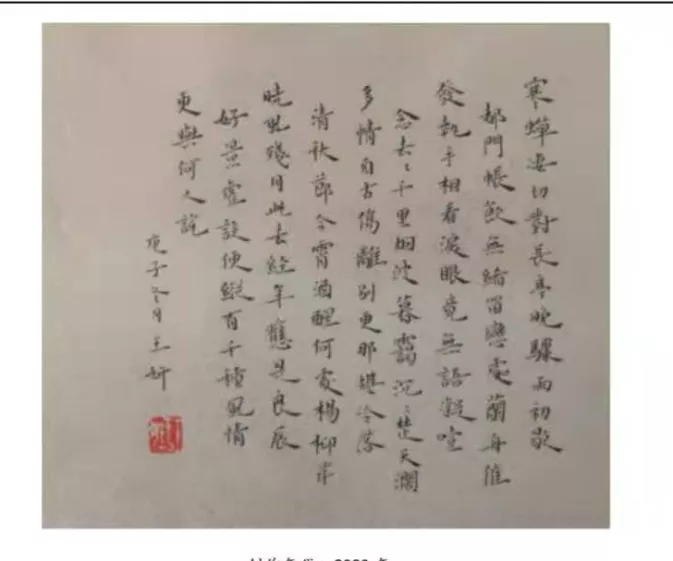 寒蟬凄切對長亭晚驟雨初歇
都門帳飲無緒留戀處蘭舟催
發執手相看淚眼竟無語凝噎
念去々千里烟波暮靄沉々楚天濶
多情自古傷離別更那堪冷落
清秋節今宵酒醒何處楊柳岸
曉風殘月此去經年應是良辰
好景虛設便縱有千種風情
更與何人說
庚子冬月王妍